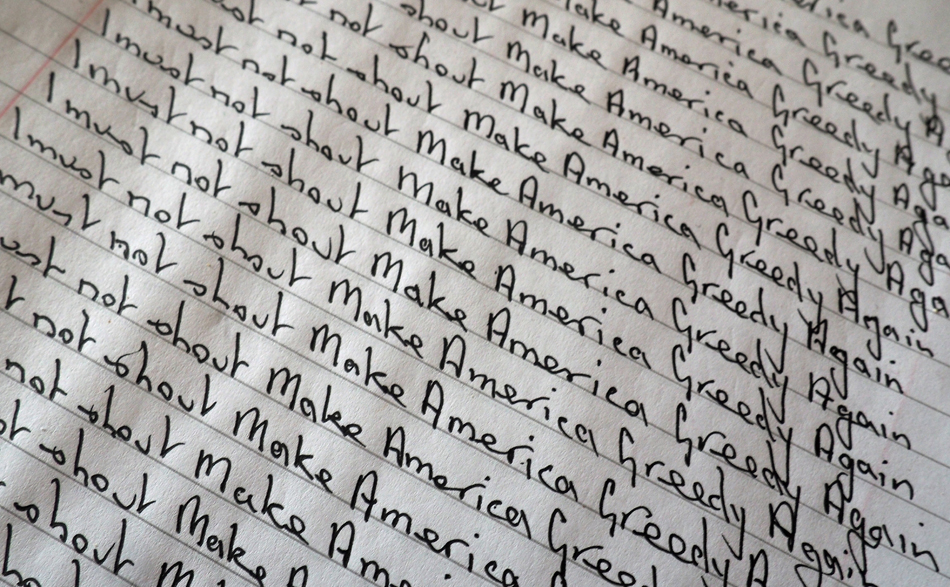 America Gree
America Greedy
Make America Greedy A
shout Make America Greedy Aga
not shout Make America Greedy Aga
not shout Make America Greedy Aga
I must not shout Make America Greedy Again
I must not shout Make America Greedy Again
I must not shout Make America Greedy Again
I must not shout Make America Greedy Again
I must not shout Make America Greedy Again
must not shout Make America Greedy Agai
ust not shout Make America Greedy A
t not shout Make America Greed
not shout Make Ame
ot shout Make A
shout M
ho